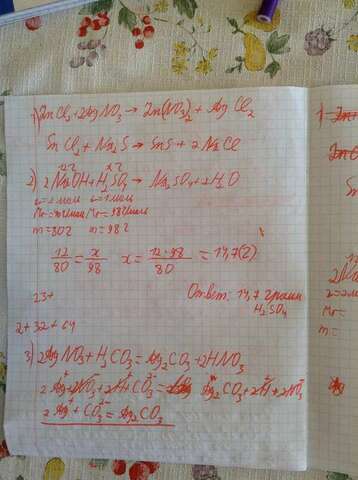 1) ZnCl₂+2AgNO₃ → Zn(NO₃)₂ + AgCl₂
SnCl₂ + Na₂S → SnS + 2NaCl
12г x г
2) 2NaOH+H₂SO₄ → Na₂SO₄+2H₂O
ν=2моль ν=1моль
Mr=40г/моль Mr=98г/моль
m=80г m=98г
12/80 = x/98 x = 12·98/80 = 14,7(г)
23+
Ответ: 14,7 грамм
H₂SO₄
2+32+64
3) 2AgNO₃+H₂CO₃=Ag₂CO₃+2HNO₃
2Ag⁺+2NO₃⁻+2H⁺+CO₃²⁻= Ag₂CO₃+2H⁺+2NO₃⁻
2Ag⁺+CO₃²⁻=Ag₂CO₃